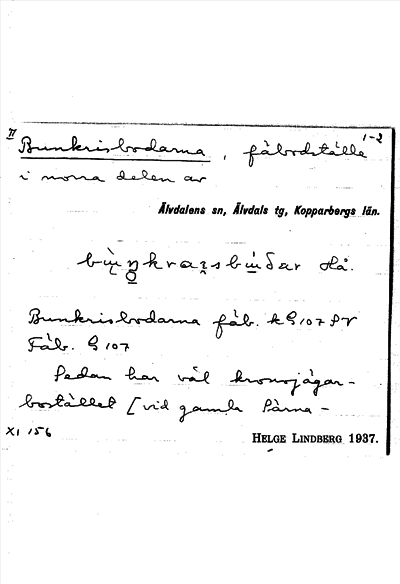 II
1-2
Bunkrisbodarna, fäbodställe
i norra delen av
Älvdalens sn, Älvdals tg, Kopparbergs län.
Hå.
Bunkrisbodarna fäb. k G 107 SV
Fäb. G 107
Sedan har väl kronojägar-
bostället [vid gamla Särna-
XI 156
HELGE LINDBERG 1937.